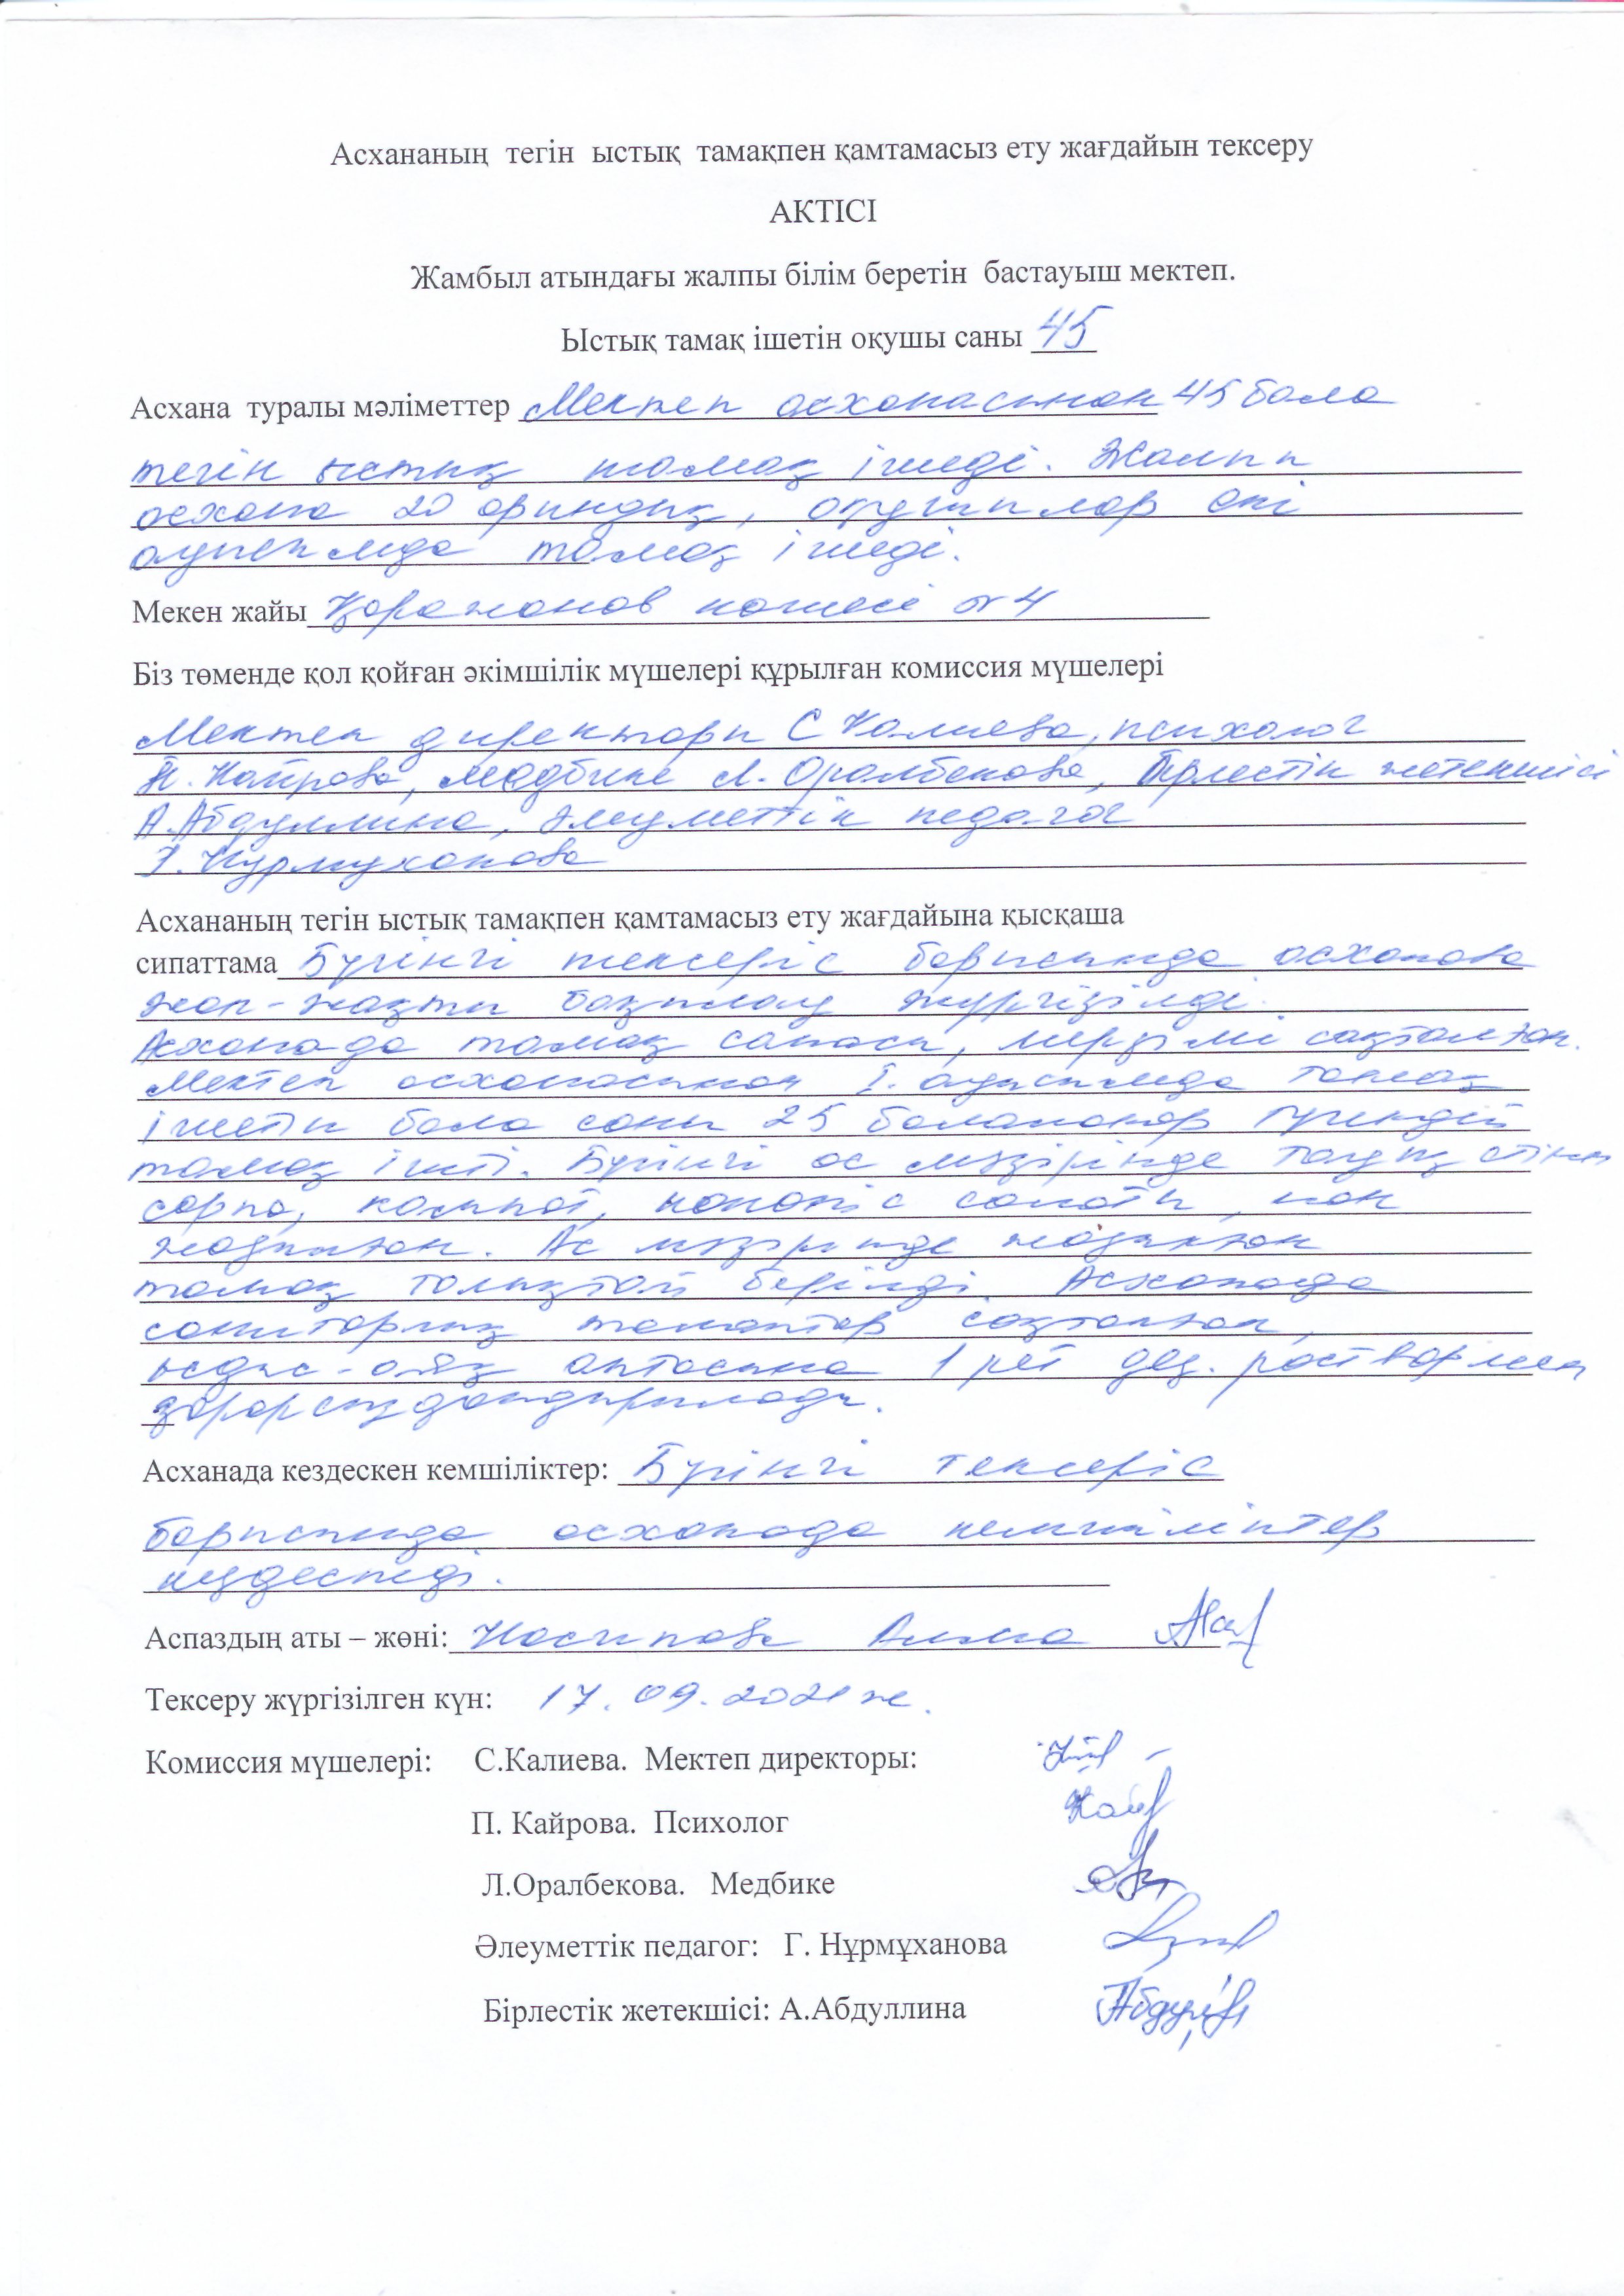 Асхананың тегін ыстық тамақпен қамтамасыз ету жағдайын тексеру
АКТІСІ
Жамбыл атындағы жалпы білім беретін бастауыш мектеп.
Ыстық тамақ ішетін оқушы саны 45
Асхана туралы мәліметтер Мектеп асханасынан 45 бала
тегін ыстық тамақ ішеді. Жалпы
асхана 20 орындық, оқушылар екі
ауысымда тамақ ішеді.
Мекен жайы Қаражанов көшесі №4
Біз төменде қол қойған әкімшілік мүшелері құрылған комиссия мүшелері
Мектеп директоры С Калиева, психолог
П. Каирова, медбике Л. Оралбекова, Бірлестік жетекшісі
А.Абдуллина, әлеуметтік педагог
Г. Нурмуханова
Асхананың тегін ыстық тамақпен қамтамасыз ету жағдайына қысқаша
сипаттама Бүгінгі тексеріс барысында асханаға
жан-жақты бақылау жүргізілді.
Асханада тамақ сапасы, мерзімі сақталған.
Мектеп асханасынан I. ауысымда тамақ
ішетін бала саны 25 балаланар түгендей
тамақ ішті. Бүгінгі ас мәзірінде тауық етінен
сорпа, компот, көкөніс салаты, нан
жазылған. Ас мәзірінде жазылған
тамақ толықтай берілді. Асханада
санитарлық талаптар сақталған,
ыдыс-аяқ аптасына 1 рет дез. раствормен
зарарсыздандырылады.
Асханада кездескен кемшіліктер: Бүгінгі тексеріс
барысында асханада кемшіліктер
кездеспеді.
Аспаздың аты – жөні: Насипова Алма
Тексеру жүргізілген күн: 17.09.2021 ж.
Комиссия мүшелері: С.Калиева. Мектеп директоры:
П. Кайрова. Психолог
Л.Оралбекова. Медбике
Әлеуметтік педагог: Г. Нұрмұханова
Бірлестік жетекшісі: А.Абдуллина